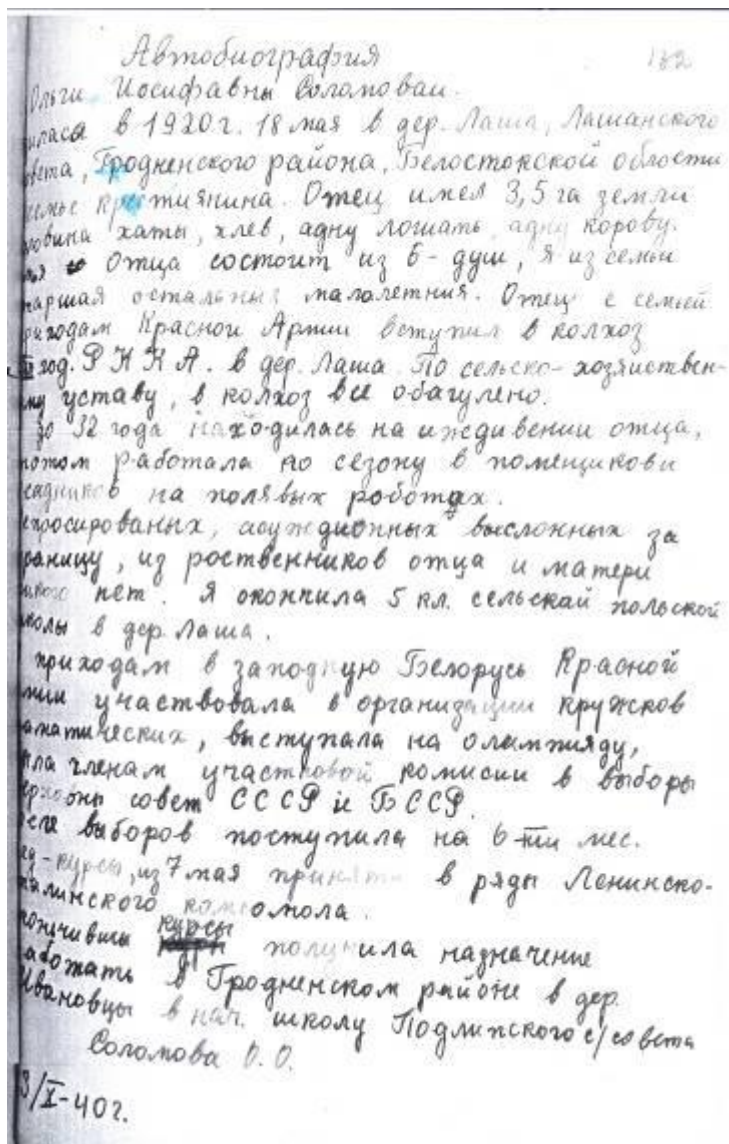 Автобиография
132
Ольги Иосифавны Соломоваи.
илася в 1920 г. 18 мая в дер. Лаша, Лашанского
овета, Гродненского района, Белостокской области
семье крестиянина. Отец имел 3,5 га земли
ловина хаты, хлев, адну лошать, адну корову.
отца состоит из 6-душ, я из семьи
таршая остальныя малолетния. Отец с семьей
риходам Красной Армии вступил в колхоз
год. РККА. в дер. Лаша. По сельско-хозяиствен-
му уставу, в колхоз все обагулено.
до 32 года находилась на иждивении отца,
потом работала по сезону в помещикови
на полявых роботах.
епросированых, асуждионных высложных за
раницу, из роственников отца и матери
никого нет. Я окончила 5 кл. сельскай польской
колы в дер. Лаша.
приходам в заподную Белорусь Красной
мии участвовала в организации кружков
аматических, выступала на олимпияду,
ыла членам участковой комисии в выборы
ерховны совет СССР и БССР.
осле выборов поступила на 6-ти мес.
ед-курсы, из 7 мая принята в ряды Ленинско-
талинского комсомола.
кончивши курсы получила назначение
аботать в Гродненском районе в дер.
Ивановцы в нач. школу Подлипского с/совета
Соломова О. О.
3/X-40г.